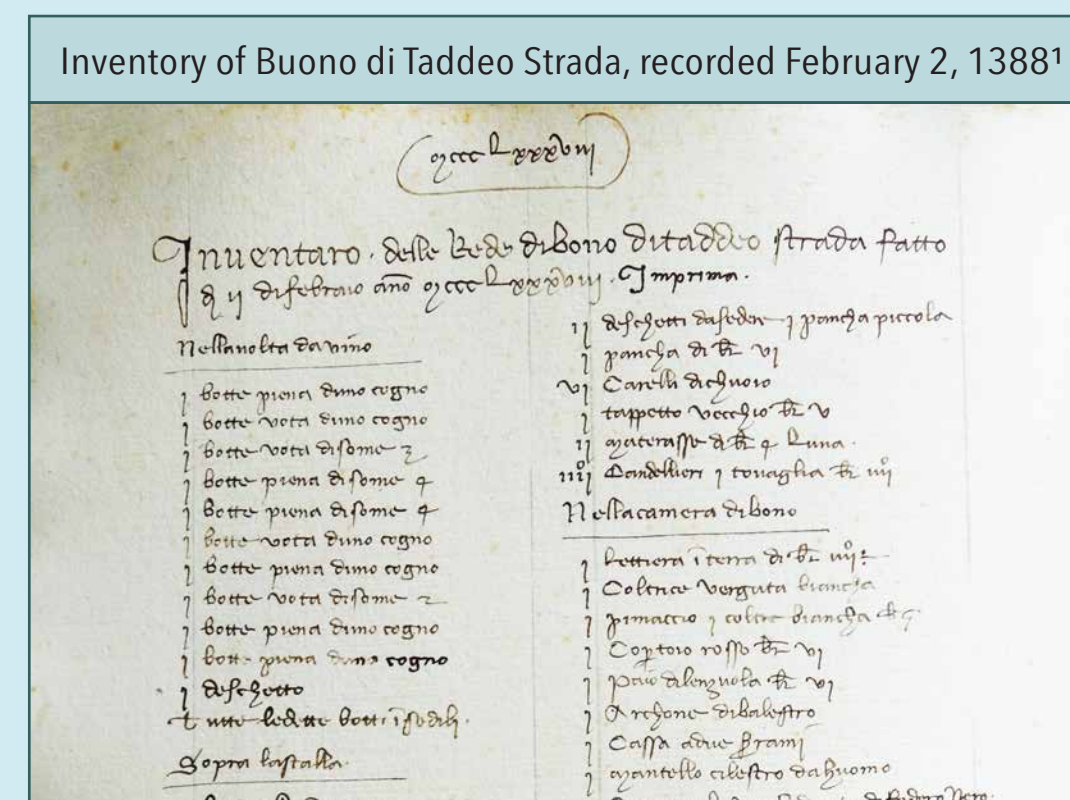 Inventory of Buono di Taddeo Strada, recorded February 2, 1388¹
Mccc Lxxxviii
Inuentaro · delle Rede dibono ditaddeo strada fatto
a ij difebraio año Mccc Lxxxviii · Imprima ·
Nellauolta dauino
j botte piena duno cogno
j botte vota duno cogno
j botte vota disome 3
j botte piena disome 4
j botte piena disome 4
j botte vota duno cogno
j botte piena duno cogno
j botte vota disome 2
j botte piena duno cogno
j botte piena duno cogno
j deschetto
Tutte ledette botti ī sedili ·
Sopra lastalla ·
ij deschetti dasedere j pancha piccola
j pancha di br vj
vj Carelli dichuoio
j tappetto vecchio br v
ij Materasse di br 4 Luna ·
iiij Candellieri j touaglia br iiij
Nellacamera dibono
j Lettiera ī terra di br iiij
j Coltrice verghata biancha
j pimaccio j coltre biancha
j Copertoio rosso br vj
j Paio dilenzuola br vj
j Archone dibalestro
j Cassa adue serami
j Mantello cilestro dahuomo